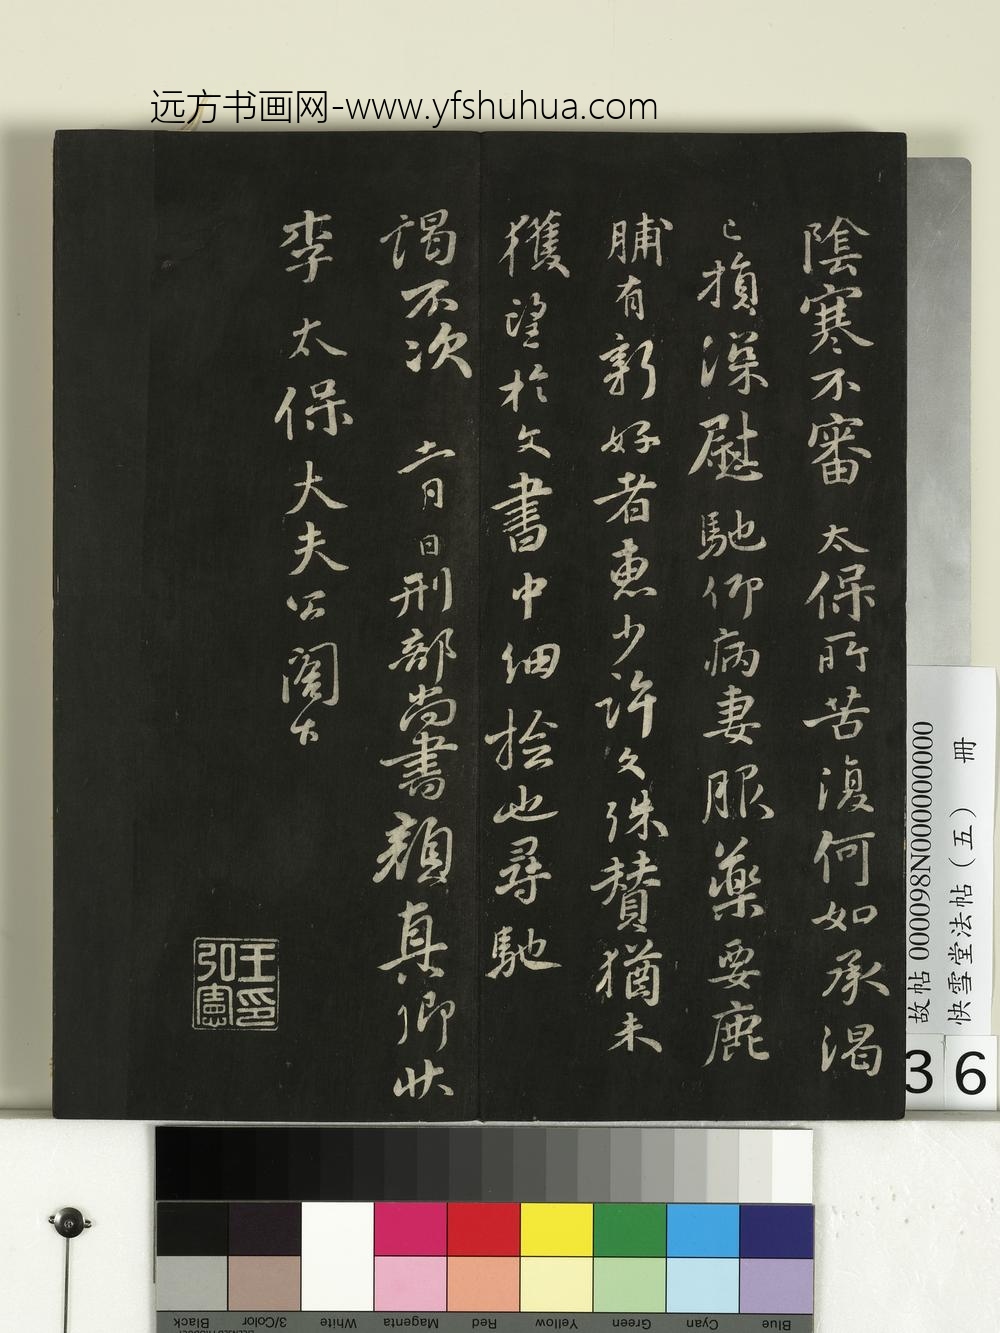 远方书画网-www.yfshuhua.com
陰寒不審 太保所苦復何如承渴
已損深慰馳仰病妻服藥要鹿
脯有新好者惠少許幸殊賛猶未
獲望於文書中細撿也尋馳
謁不次 十一月日刑部尚書顏真卿狀
李太保大夫公閤下
王印弘憲
故帖 000098N000000000
快雪堂法帖（五） 冊
36
Black
3/Color
White
Magenta
Red
Yellow
Green
Cyan
Blue